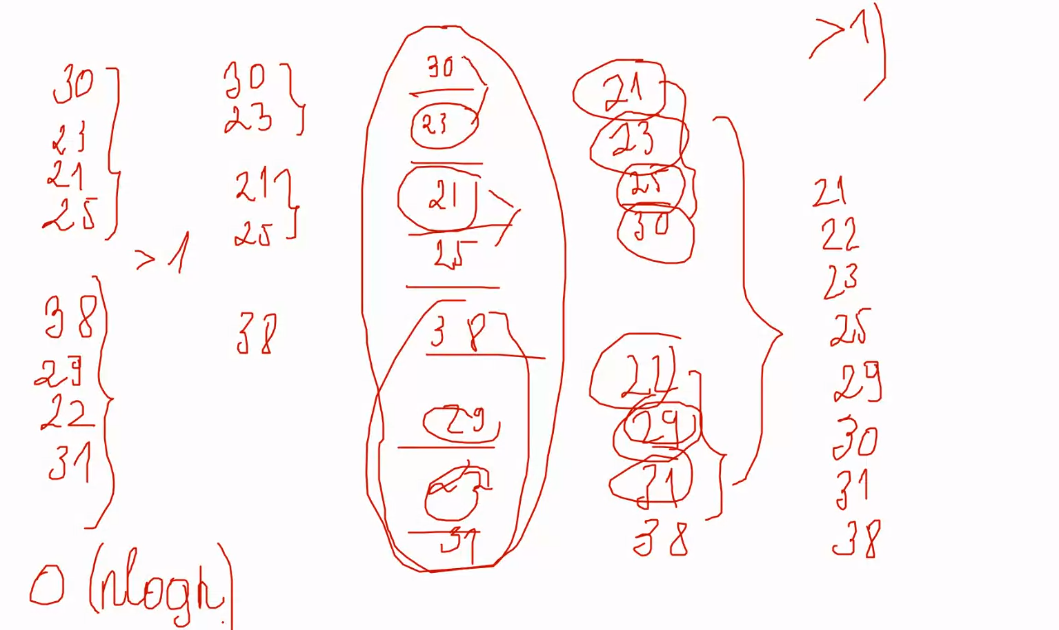 >1)
30
23
21
25
>1
38
29
22
31
30
23
21
25
38
30
23
21
25
38
29
22
31
21
23
25
30
22
29
31
38
21
22
23
25
29
30
31
38
O(nlogn)